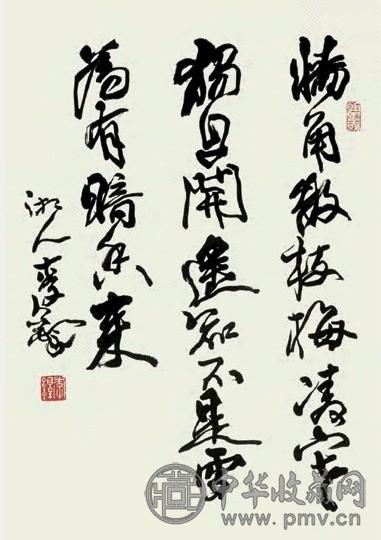 墙角数枝梅凌寒
独自開遥知不是雪
为有暗香来
湘人李
中华收藏网
www.pmv.cn